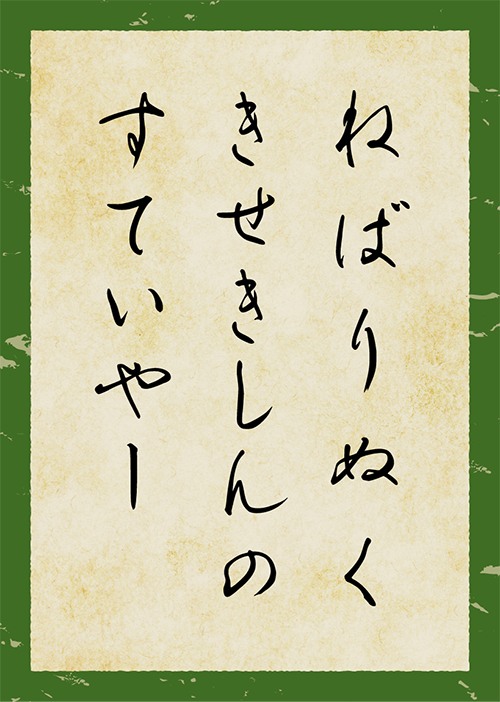 ねばりぬく
きせきしんの
すていやー